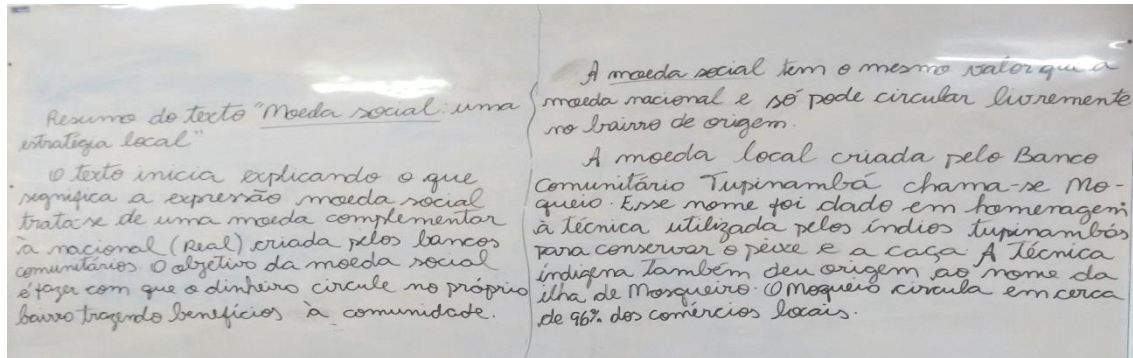 Resumo do texto "Moeda social: uma
estratégia local"
O texto inicia explicando o que
significa a expressão moeda social
trata-se de uma moeda complementar
à nacional (Real) criada pelos bancos
comunitários. O objetivo da moeda social
é fazer com que o dinheiro circule no próprio
bairro trazendo benefícios à comunidade.
A moeda social tem o mesmo valor que a
moeda nacional e só pode circular livremente
no bairro de origem.
A moeda local criada pelo Banco
Comunitário Tupinambá chama-se Mo-
queio. Esse nome foi dado em homenagem
à técnica utilizada pelos índios tupinambás
para conservar o peixe e a caça. A Técnica
indígena também deu origem ao nome da
ilha de Mosqueiro. O Moqueio circula em cerca
de 96% dos comércios locais.